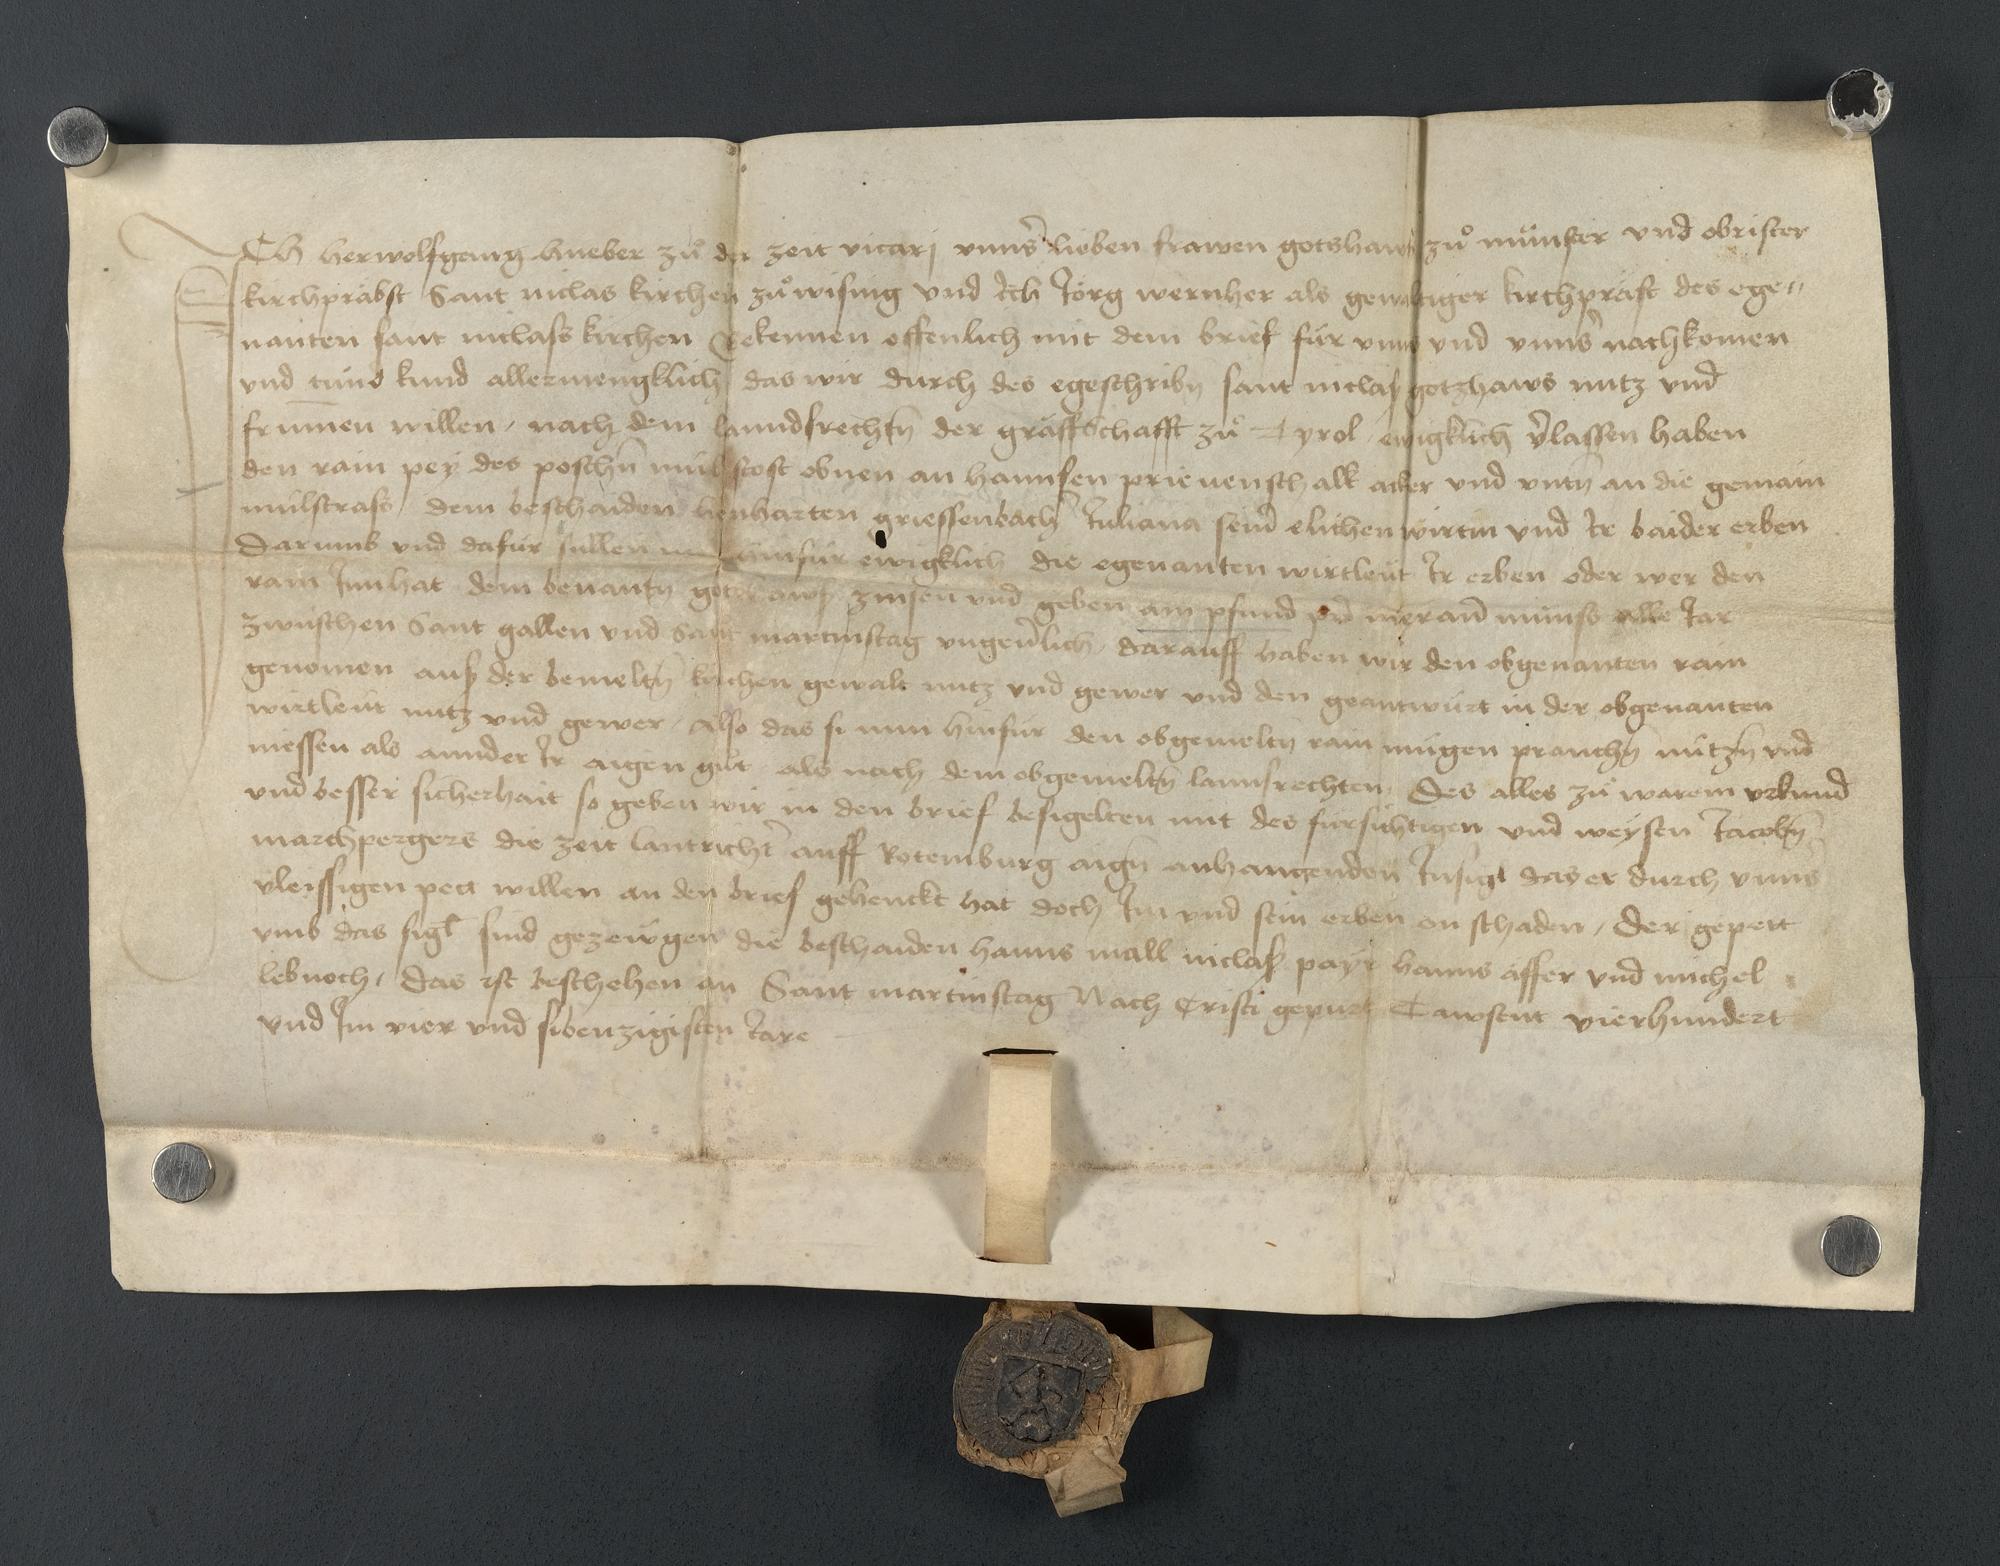 Ich her wolfgang hueber zuͦ der zeit vicarj vnnser lieben frawen gotshaws zuͦ muͤnster vnd obrister
kirchprabst Sant niclas kirchen zuͦ wising vnd Ich Jörg wernher als gewaltiger kirchpräst des ege-
nanten sant niclass kirchen Bekennen offenlich mit dem brief für vnns vnd vnnser nachkomen
vnd tund kund allermengklich das wir durch des egeschribn̄ sant niclas gotzhaws nutz vnd
frumen willen, nach dem lanndsrechtn̄ der gräffschafft zuͦ Tyrol ewigklich v̄lassen haben
den rain pey des poschn̄ mül stost obnen an hannsen prieuenschalk aker vnd vntn̄ an die gemain
mulstrass, dem beschaiden lienharten griessenbach̄ Juliana sein̄ elichen wirtin vnd Ir baider erben
Darumb vnd dafür sullen hinfür ewigklich die egenanten wirtleüt Ir erben oder wer den
rain Innhat dem benantn̄ gotzhaws zinsen vnd geben ain pfund pn̄ meran̄ münss alle Jar
zwischen Sant gallen vnd Sant martinstag vngeu̅lich, darauff haben wir den obgenanten rain
genomen aus der bemeltn̄ kirchen gewalt nutz vnd gewer vnd den geantwürt in der obgenanten
wirtleüt nutz vnd gewer, Also das si nun hinfür den obgemeltn̄ rain mügen prauchn̄ nützn̄ vnd
niessen als annder Ir aigen guͦt als nach dem obgemeltn̄ lannsrechten, Des alles zuͦ warem vrkund
vnd besser sicherhait so geben wir in den brief besigelten mit des fürsichtigen vnd weysen Jacobn̄
marchpergers die zeit lantricht̄ auff Rotemburg aign̄ anhangenden Insigl das er durch vnns̄
vleissigen pett willen an den brief gehenckt hat doch Im vnd sein erben on schaden, Der gepett
vmb das sigl̄ sind gezewgen die beschaiden hanns mall niclas payr hanns äffer vnd michel
lebnoch, Das ist beschehen an Sant martinstag Nach Cristi gepurt Tawsent vierhundert
vnd Im vier vnd sibenzigisten Jare